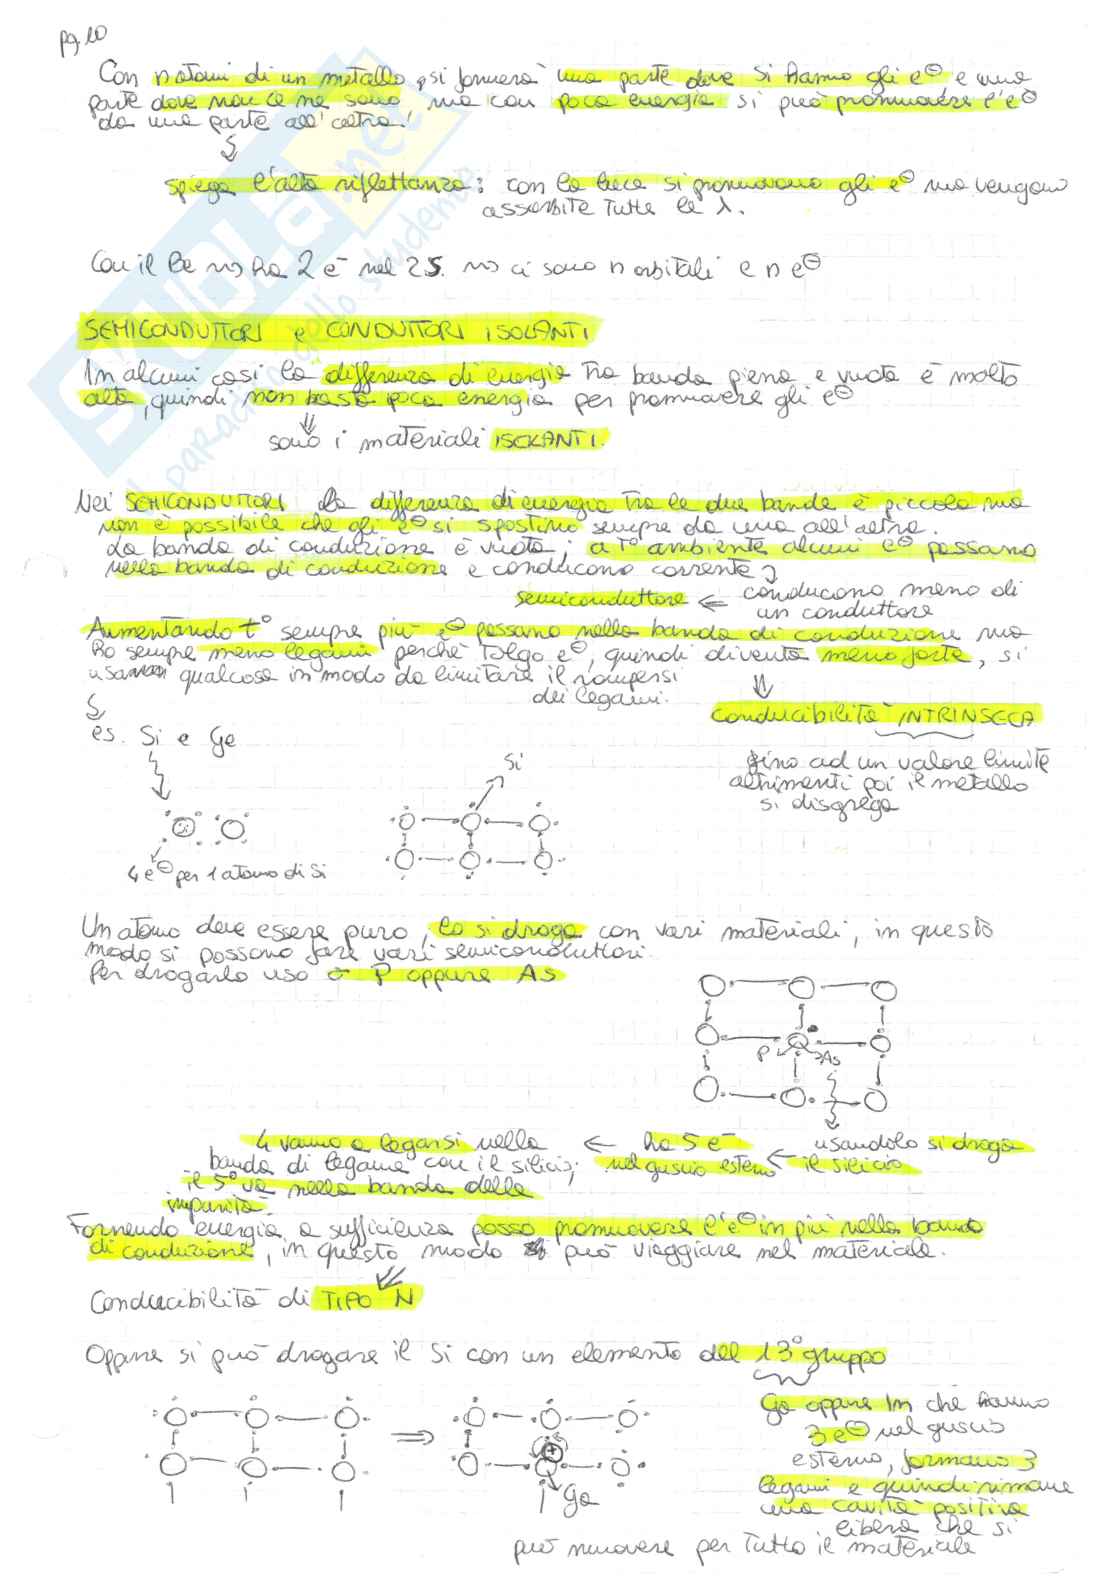 pg 10
Con n atomi di un metallo, si formerà una parte dove si hanno gli e⊖ e una
parte dove non ce ne sono ma con poca energia si può promuovere l'e⊖
da una parte all'altra!
spiega l'alta riflettanza: con la luce si promuovono gli e⊖ ma vengono
assorbite tutte le λ.
Con il Be ~> ha 2 e⁻ nel 2s. ~> ci sono n orbitali e n e⊖
SEMICONDUTTORI e CONDUTTORI ISOLANTI
In alcuni casi la differenza di energia tra banda piena e vuota è molto
alta, quindi non basta poca energia per promuovere gli e⊖
sono i materiali ISOLANTI.
Nei SEMICONDUTTORI la differenza di energia tra le due bande è piccola ma
non è possibile che gli e⊖ si spostino sempre da una all'altra.
La banda di conduzione è vuota; a T° ambiente alcuni e⊖ passano
nella banda di conduzione e conducono corrente
semiconduttore <= conducono meno di
un conduttore
Aumentando t° sempre più e⊖ passano nella banda di conduzione ma
ho sempre meno legami perché tolgo e⊖, quindi diventa meno forte, si
usa qualcosa in modo da limitare il rompersi
dei legami.
conducibilità INTRINSECA
es. Si e Ge
fino ad un valore limite
altrimenti poi il metallo
si disgrega
Si
4 e⊖ per 1 atomo di Si
Un atomo deve essere puro, lo si droga con vari materiali, in questo
modo si possono fare vari semiconduttori.
Per drogarlo uso o P oppure As
P As
4 vanno a legarsi nella <- ha 5 e⁻ usandolo si droga
banda di legame con il silicio; nel guscio esterno <- il silicio
il 5° va nella banda delle
impurità
Fornendo energia a sufficienza posso promuovere l'e⊖ in più nella banda
di conduzione, in questo modo può viaggiare nel materiale.
Conducibilità di TIPO N
Oppure si può drogare il Si con un elemento del 13° gruppo
Ga oppure In che hanno
3 e⊖ nel guscio
esterno, formano 3
legami e quindi rimane
una cavità positiva
libera che si
può muovere per tutto il materiale
+
Ga
SKUOLA.net
il paradiso dello studente